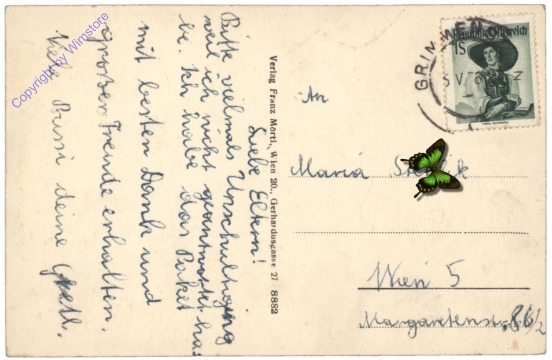 Liebe Eltern!
Bitte vielmals Urschuldigung
weil ich nicht geantwortet ha
be. Ich habe das Paket
mit besten Dank und
grosser Freude erhalten.
Viele Bussi deine Gretl.
Verlag Franz Mörtl, Wien 20., Gerhardusgasse 27 8882
An
Maria
Wien 5
Margaretenstr. 86/2
GRIN
1S
Republik Österreich
Copyright by Wimstore